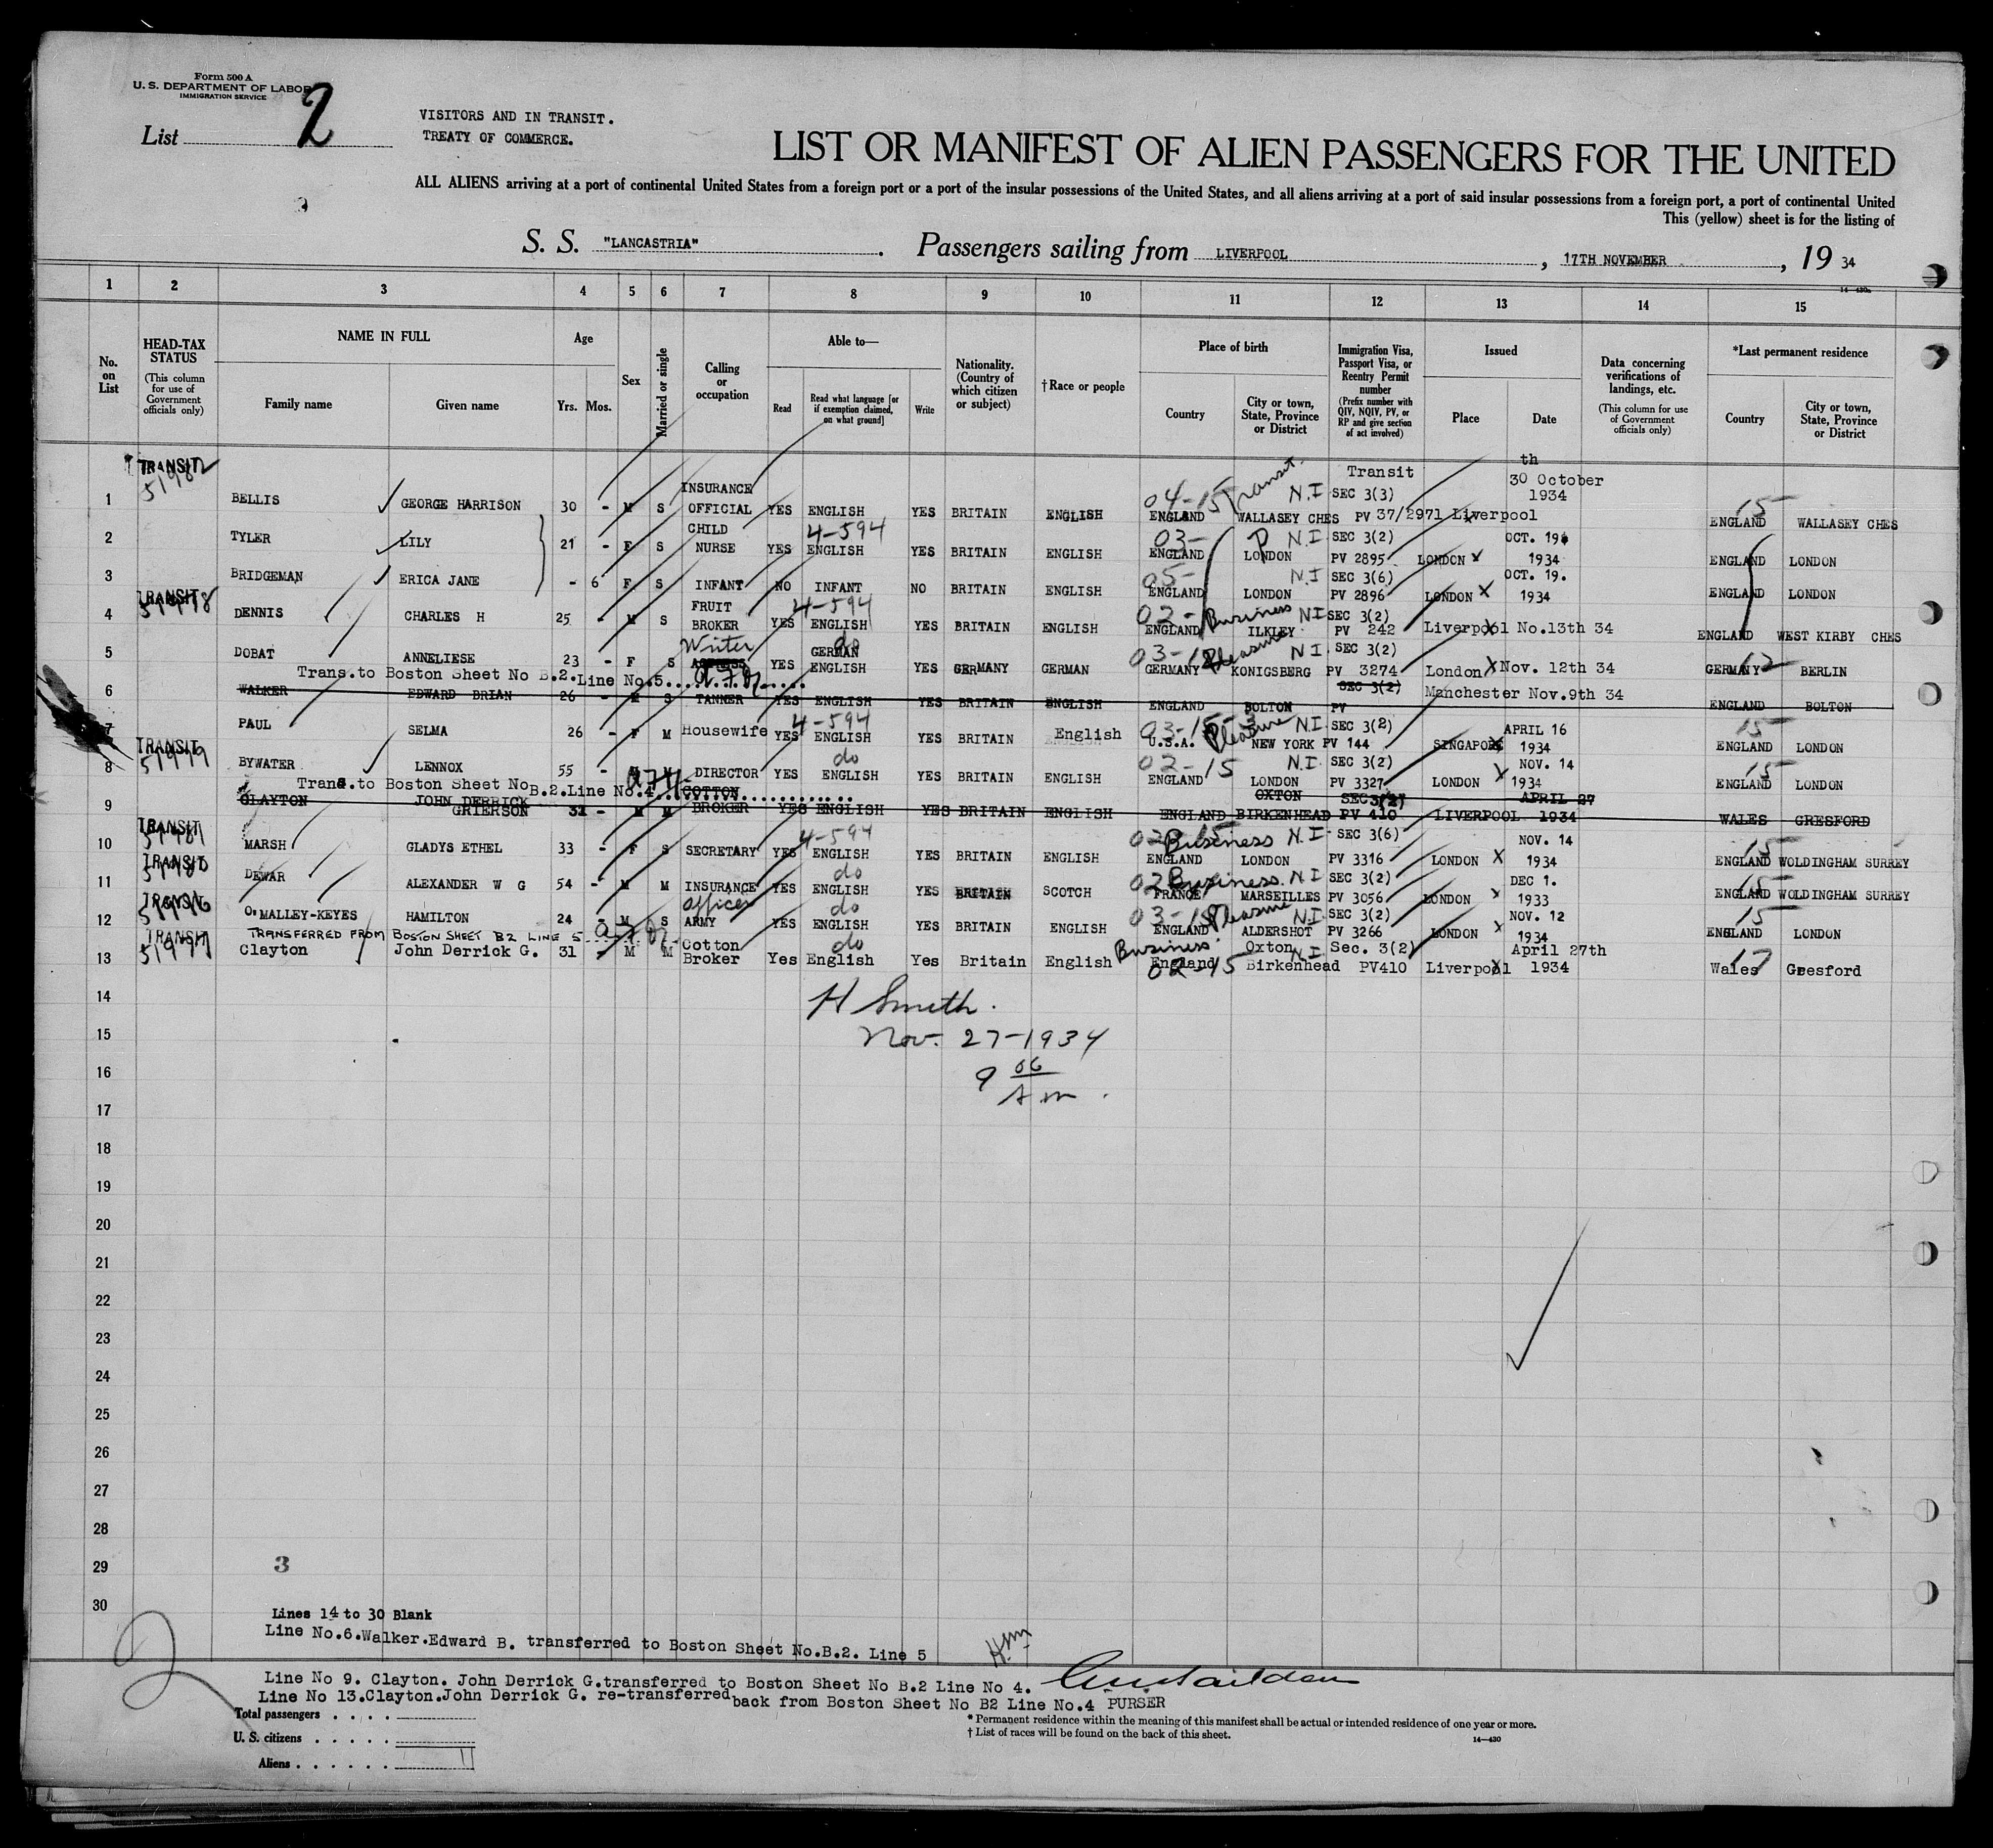 Form 500 A
U. S. DEPARTMENT OF LABOR
IMMIGRATION SERVICE
List 2
VISITORS AND IN TRANSIT.
TREATY OF COMMERCE.
LIST OR MANIFEST OF ALIEN PASSENGERS FOR THE UNITED
ALL ALIENS arriving at a port of continental United States from a foreign port or a port of the insular possessions of the United States, and all aliens arriving at a port of said insular possessions from a foreign port, a port of continental United
This (yellow) sheet is for the listing of
S. S. "LANCASTRIA". Passengers sailing from LIVERPOOL, 17TH NOVEMBER, 19 34
1 2 3 4 5 6 7 8 9 10 11 12 13 14 15
No. on List
HEAD-TAX STATUS
(This column for use of Government officials only)
NAME IN FULL
Family name Given name
Age
Yrs. Mos.
Sex
Married or single
Calling or occupation
Able to—
Read
Read what language [or if exemption claimed, on what ground]
Write
Nationality. (Country of which citizen or subject)
† Race or people
Place of birth
Country
City or town, State, Province or District
Immigration Visa, Passport Visa, or Reentry Permit number
(Prefix number with QIV, NQIV, PV, or RP and give section of act involved)
Issued
Place Date
Data concerning verifications of landings, etc.
(This column for use of Government officials only)
*Last permanent residence
Country
City or town, State, Province or District
TRANSIT 51982 Transit Transit th
1 BELLIS GEORGE HARRISON 30 - M S INSURANCE OFFICIAL YES ENGLISH YES BRITAIN ENGLISH 04-15 ENGLAND N.I WALLASEY CHES SEC 3(3) PV 37/2971 Liverpool 30 October 1934 15 ENGLAND WALLASEY CHES
2 TYLER LILY 21 - F S CHILD NURSE YES 4-594 ENGLISH YES BRITAIN ENGLISH 03- ENGLAND P N.I LONDON SEC 3(2) PV 2895 LONDON OCT. 19 1934 ENGLAND LONDON
3 BRIDGEMAN ERICA JANE - 6 F S INFANT NO INFANT NO BRITAIN ENGLISH 05- ENGLAND N.I LONDON SEC 3(6) PV 2896 LONDON OCT. 19. 1934 ENGLAND LONDON
TRANSIT
4 DENNIS CHARLES H 25 - M S FRUIT BROKER YES 4-594 ENGLISH YES BRITAIN ENGLISH 02- Business N I ENGLAND ILKLEY SEC 3(2) PV 242 Liverpool No.13th 34 ENGLAND WEST KIRBY CHES
5 DOBAT ANNELIESE 23 - F S Writer YES do GERMAN ENGLISH YES GERMANY GERMAN 03-12 Pleasure N.I. GERMANY KONIGSBERG SEC 3(2) PV 3274 London Nov. 12th 34 12 GERMANY BERLIN
Trans.to Boston Sheet No B.2.Line No.5
6 WALKER EDWARD BRIAN 26 - M S TANNER YES ENGLISH YES BRITAIN ENGLISH ENGLAND BOLTON SEC 3(2) PV Manchester Nov.9th 34 ENGLAND BOLTON
7 PAUL SELMA 26 - F M Housewife YES 4-594 ENGLISH YES BRITAIN English 03-15-3 Pleasure N.I. U.S.A. NEW YORK SEC 3(2) PV 144 SINGAPORE APRIL 16 1934 15 ENGLAND LONDON
TRANSIT 51979
8 BYWATER LENNOX 55 - M M DIRECTOR YES do ENGLISH YES BRITAIN ENGLISH 02-15 N.I. ENGLAND LONDON SEC 3(2) PV 3327 LONDON NOV. 14 1934 15 ENGLAND LONDON
Trans.to Boston Sheet No B.2.Line No.4
9 CLAYTON JOHN DERRICK GRIERSON 31 - M M COTTON BROKER YES ENGLISH YES BRITAIN ENGLISH ENGLAND OXTON BIRKENHEAD SEC 3(2) PV 410 LIVERPOOL APRIL 27 1934 WALES GRESFORD
TRANSIT 51981
10 MARSH GLADYS ETHEL 33 - F S SECRETARY YES 4-594 ENGLISH YES BRITAIN ENGLISH 02-15 Business N.I. ENGLAND LONDON SEC 3(6) PV 3316 LONDON NOV. 14 1934 15 ENGLAND WOLDINGHAM SURREY
TRANSIT 51980
11 DEWAR ALEXANDER W G 54 - M M INSURANCE YES do ENGLISH YES BRITAIN SCOTCH 02 Business. N.I FRANCE MARSEILLES SEC 3(2) PV 3056 LONDON DEC 1. 1933 15 ENGLAND WOLDINGHAM SURREY
TRANSIT
12 O'MALLEY-KEYES HAMILTON 24 - M S officer ARMY YES do ENGLISH YES BRITAIN ENGLISH 03-15 Pleasure N.I. ENGLAND ALDERSHOT SEC 3(2) PV 3266 LONDON NOV. 12 1934 15 ENGLAND LONDON
TRANSIT 51977 TRANSFERRED FROM BOSTON SHEET B2 LINE 5
13 Clayton John Derrick G. 31 - M M Cotton Broker Yes do English Yes Britain English Business 02-15 England N.I Oxton Birkenhead Sec. 3(2) PV410 Liverpool April 27th 1934 17 Wales Gresford
14 H Smith.
15 Nov. 27-1934
16 9 06 A m.
17
18
19
20
21
22
23
24
25
26
27
28
29 3
30
Lines 14 to 30 Blank
Line No.6.Walker.Edward B. transferred to Boston Sheet No.B.2. Line 5
Line No 9. Clayton. John Derrick G.transferred to Boston Sheet No B.2 Line No 4.
Line No 13.Clayton.John Derrick G. re-transferred back from Boston Sheet No B2 Line No.4 PURSER
2
Total passengers . . . .
U. S. citizens . . . . .
Aliens . . . . . . 11
* Permanent residence within the meaning of this manifest shall be actual or intended residence of one year or more.
† List of races will be found on the back of this sheet.
14—430